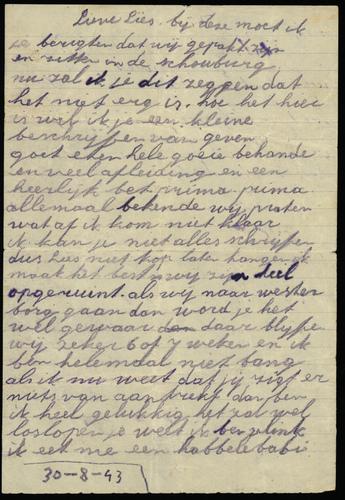 Lieve Lies. bij deze moet ik
je berigten dat wij gepakt zijn
en zitten in de schouburg
nu zal ik je dit zeggen dat
het niet erg is. hoe het hier
is wil ik je een kleine
beschrijffen van geven
goet eten hele goeie behande
en veel afleiding en een
heerlijk bet prima prima
allemaal bekende wij praten
wat af ik kom niet klaar
ik kan je niet alles schrijfen
dus Lies niet kop laten hangen ik
maak het best wij zijn heel
opgeruimt. als wij naar wester
borg gaan dan word je het
wel gewaar daar blijfe
wij zeker 6 of 7 weken en ik
ben helemaal niet bang
als ik nu weet dat jij zigt er
niets van aan trekt dan ben
ik heel gelukkig het zal wel
loslopen je weet ik ben flink
ik eet me een habbelebabie
30-8-43